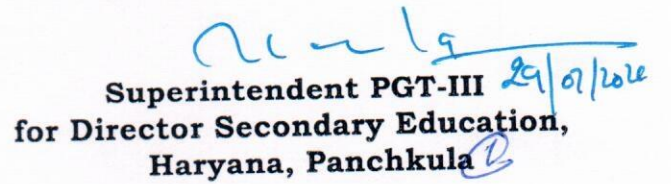 Superintendent PGT-III
for Director Secondary Education,
Haryana, Panchkula